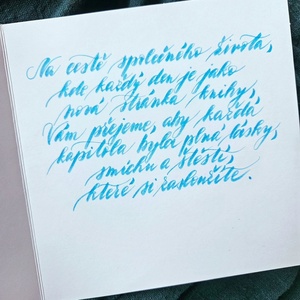 Na cestě společného života,
kde každý den je jako
nová stránka knihy,
Vám přejeme, aby každá
kapitola byla plná lásky,
smíchu a štěstí,
které si zasloužíte.